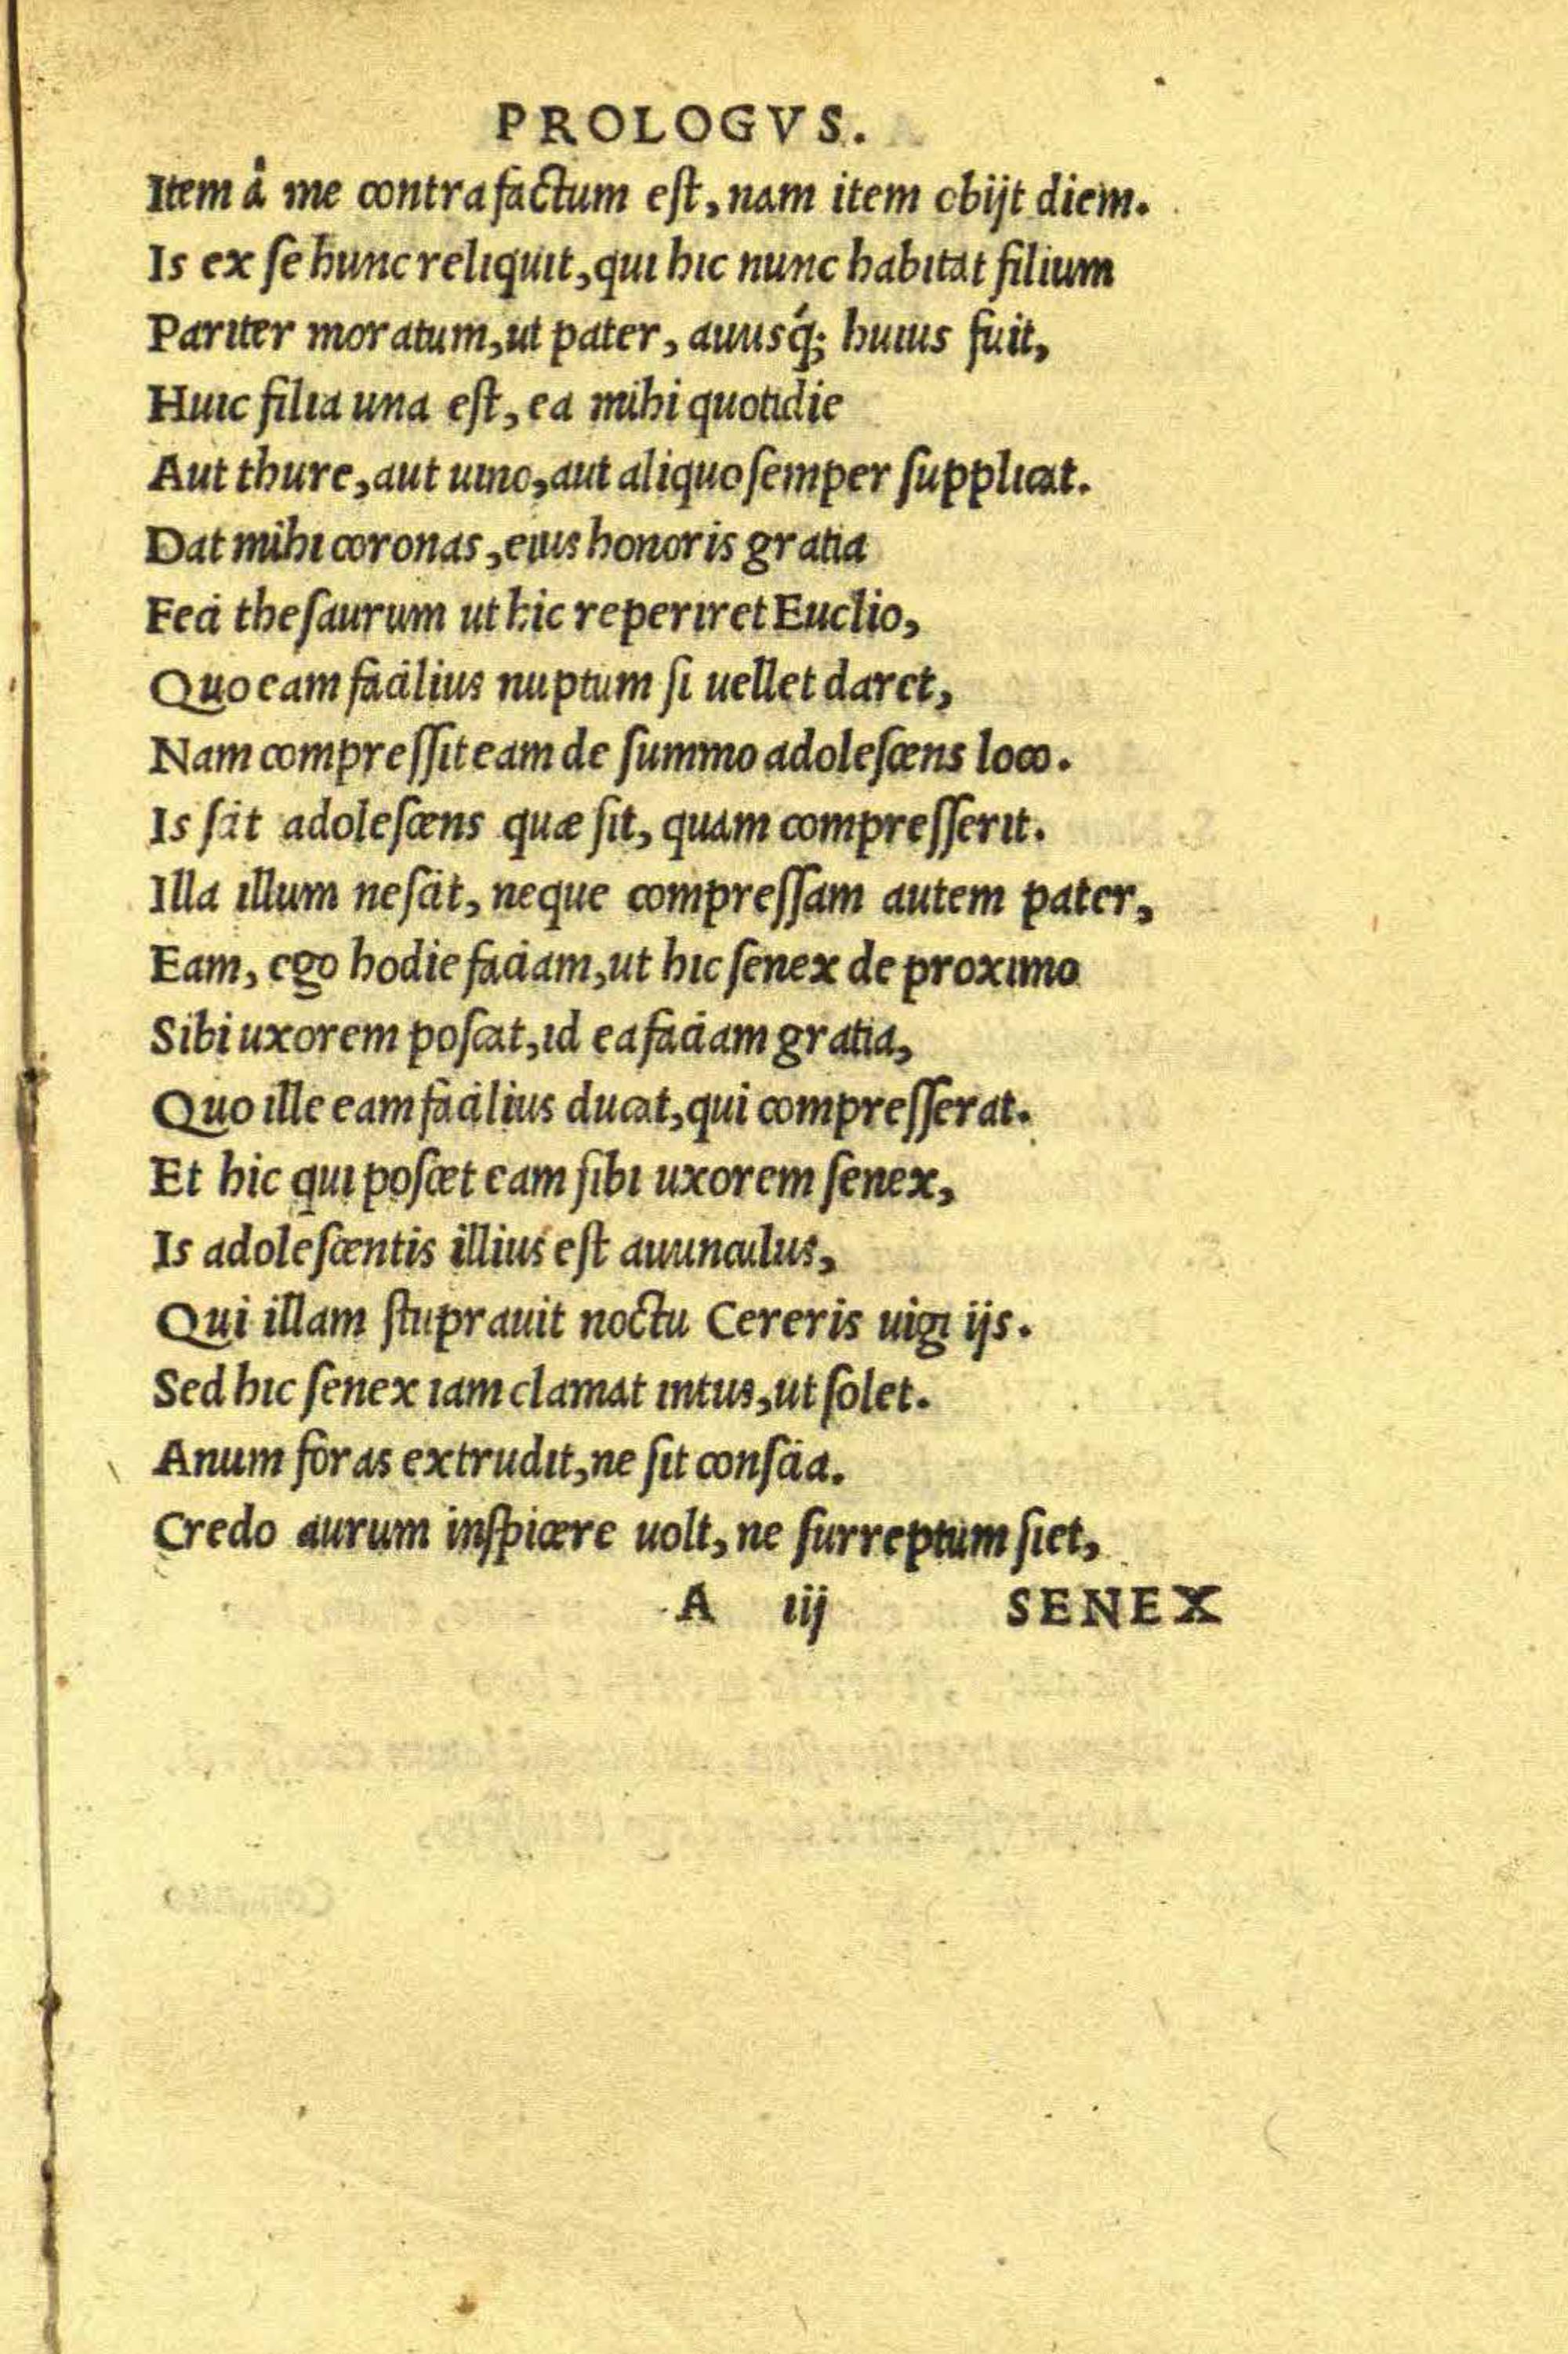 PROLOGVS.
Item à me contra factum eſt, nam item obijt diem.
Is ex ſe hunc reliquit, qui hic nunc habitat filium
Pariter moratum, ut pater, auusq́; huius fuit,
Huic filia una eſt, ea mihi quotidie
Aut thure, aut uino, aut aliquo ſemper ſupplicat.
Dat mihi coronas, eius honoris gratia
Feci theſaurum ut hic reperiret Euclio,
Quo eam facilius nuptum ſi uellet daret,
Nam compreſſit eam de ſummo adoleſcens loco.
Is ſcit adoleſcens quæ ſit, quam compreſſerit.
Illa illum neſcit, neque compreſſam autem pater,
Eam, ego hodie faciam, ut hic ſenex de proximo
Sibi uxorem poſcat, id ea faciam gratia,
Quo ille eam facilius ducat, qui compreſſerat.
Et hic qui poſcet eam ſibi uxorem ſenex,
Is adoleſcentis illius eſt auunculus,
Qui illam ſtuprauit noctu Cereris uigi ijs.
Sed hic ſenex iam clamat intus, ut ſolet.
Anum foras extrudit, ne ſit conſcia.
Credo aurum inſpicere uolt, ne ſurreptum ſiet,
A iij SENEX